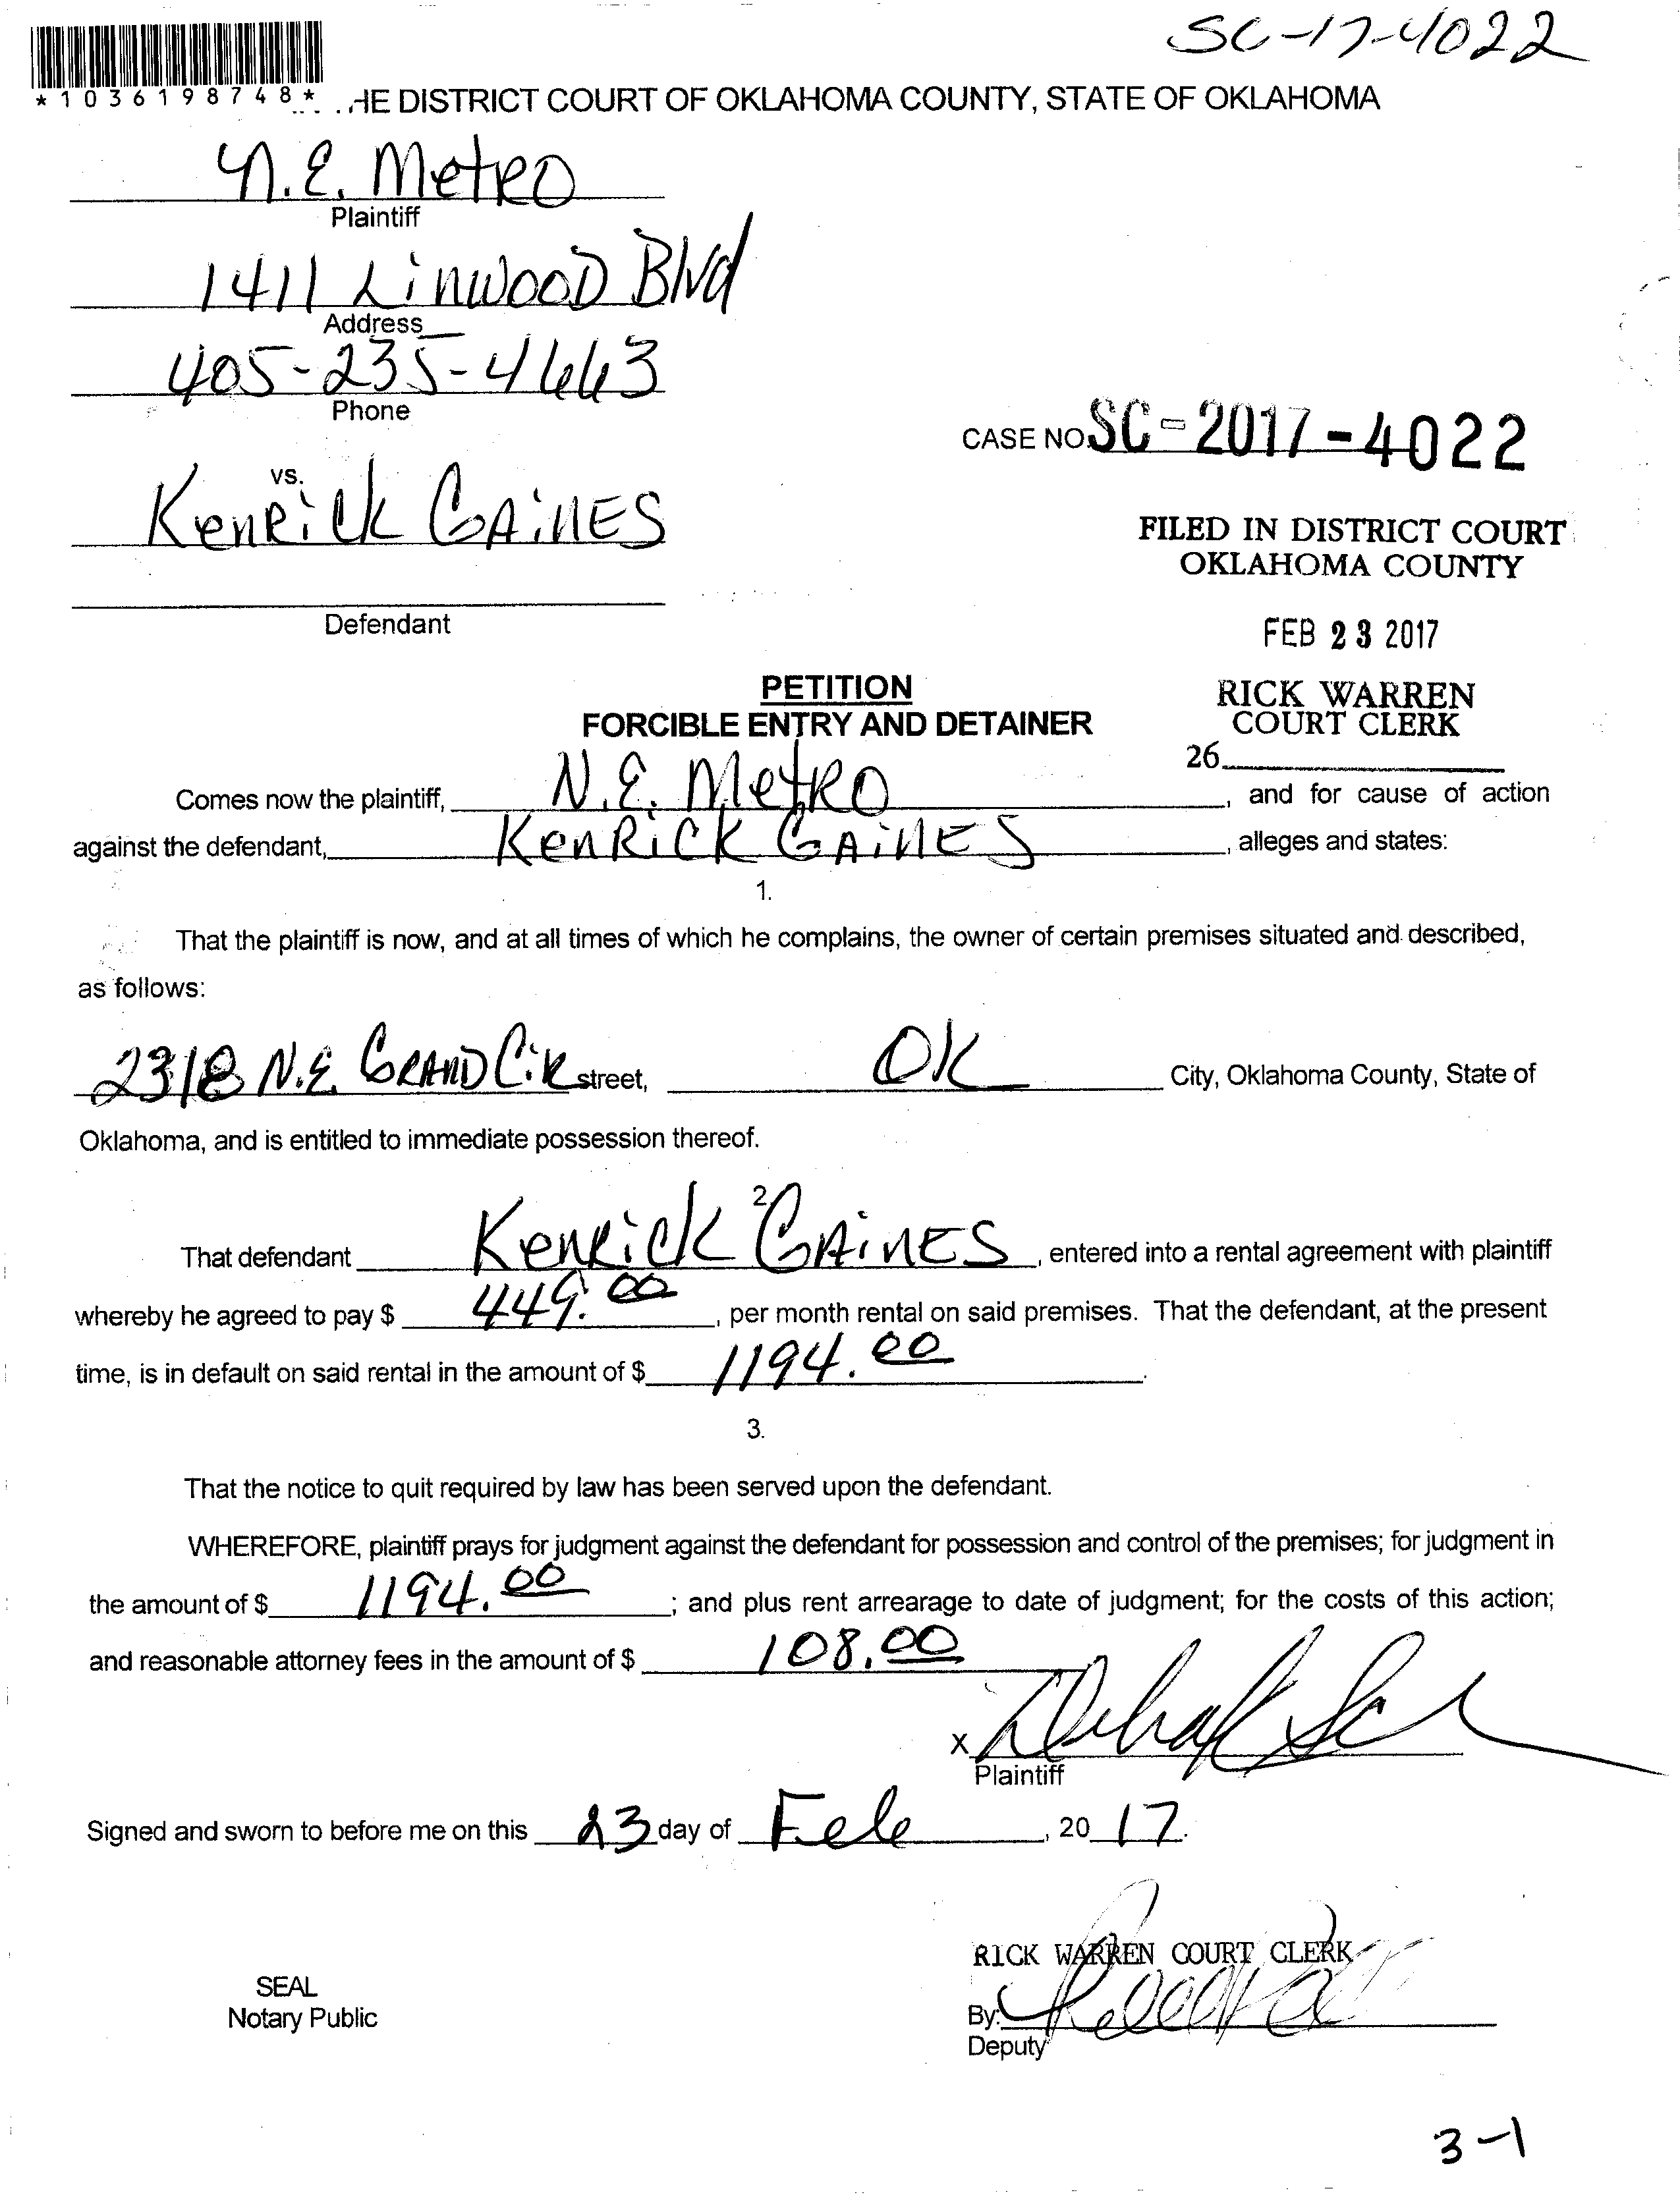 SC-17-4022
*1036198748* HE DISTRICT COURT OF OKLAHOMA COUNTY, STATE OF OKLAHOMA
N.E. Metro
Plaintiff
1411 Linwood Blvd
Address
405-235-4663
Phone
CASE NO. SC-2017-4022
vs.
Kenrick Gaines
FILED IN DISTRICT COURT
OKLAHOMA COUNTY
Defendant
FEB 23 2017
PETITION
FORCIBLE ENTRY AND DETAINER
RICK WARREN
COURT CLERK
26
Comes now the plaintiff, N.E. Metro, and for cause of action
against the defendant, Kenrick Gaines, alleges and states:
1.
That the plaintiff is now, and at all times of which he complains, the owner of certain premises situated and described,
as follows:
2318 N.E. Grand Cir street, OK City, Oklahoma County, State of
Oklahoma, and is entitled to immediate possession thereof.
2.
That defendant Kenrick Gaines, entered into a rental agreement with plaintiff
whereby he agreed to pay $ 449.00, per month rental on said premises. That the defendant, at the present
time, is in default on said rental in the amount of $ 1194.00.
3.
That the notice to quit required by law has been served upon the defendant.
WHEREFORE, plaintiff prays for judgment against the defendant for possession and control of the premises; for judgment in
the amount of $ 1194.00; and plus rent arrearage to date of judgment; for the costs of this action;
and reasonable attorney fees in the amount of $ 108.00
X
Plaintiff
Signed and sworn to before me on this 23 day of Feb, 2017.
RICK WARREN COURT CLERK
SEAL
Notary Public
By:
Deputy
3-1